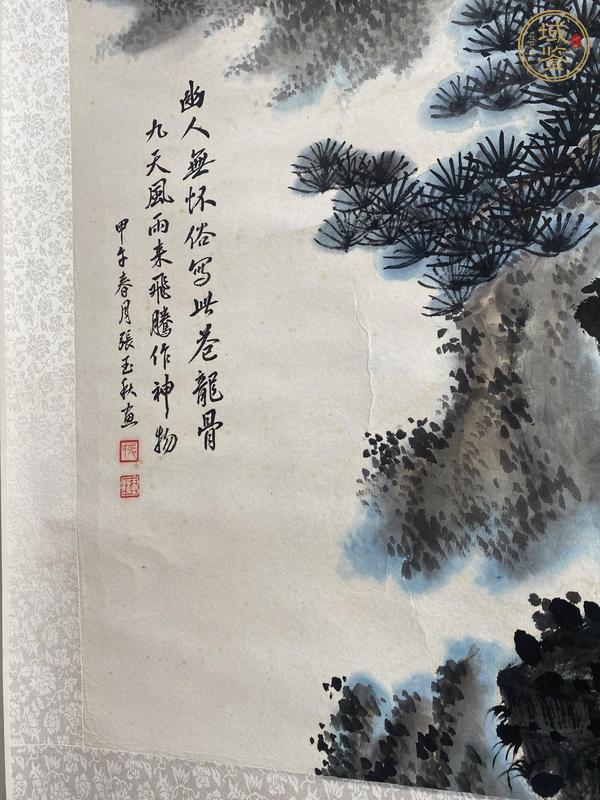 幽人無怀俗寫此蒼龍骨
九天風雨来飛騰作神物
甲午春月張玉秋畫
域鉴